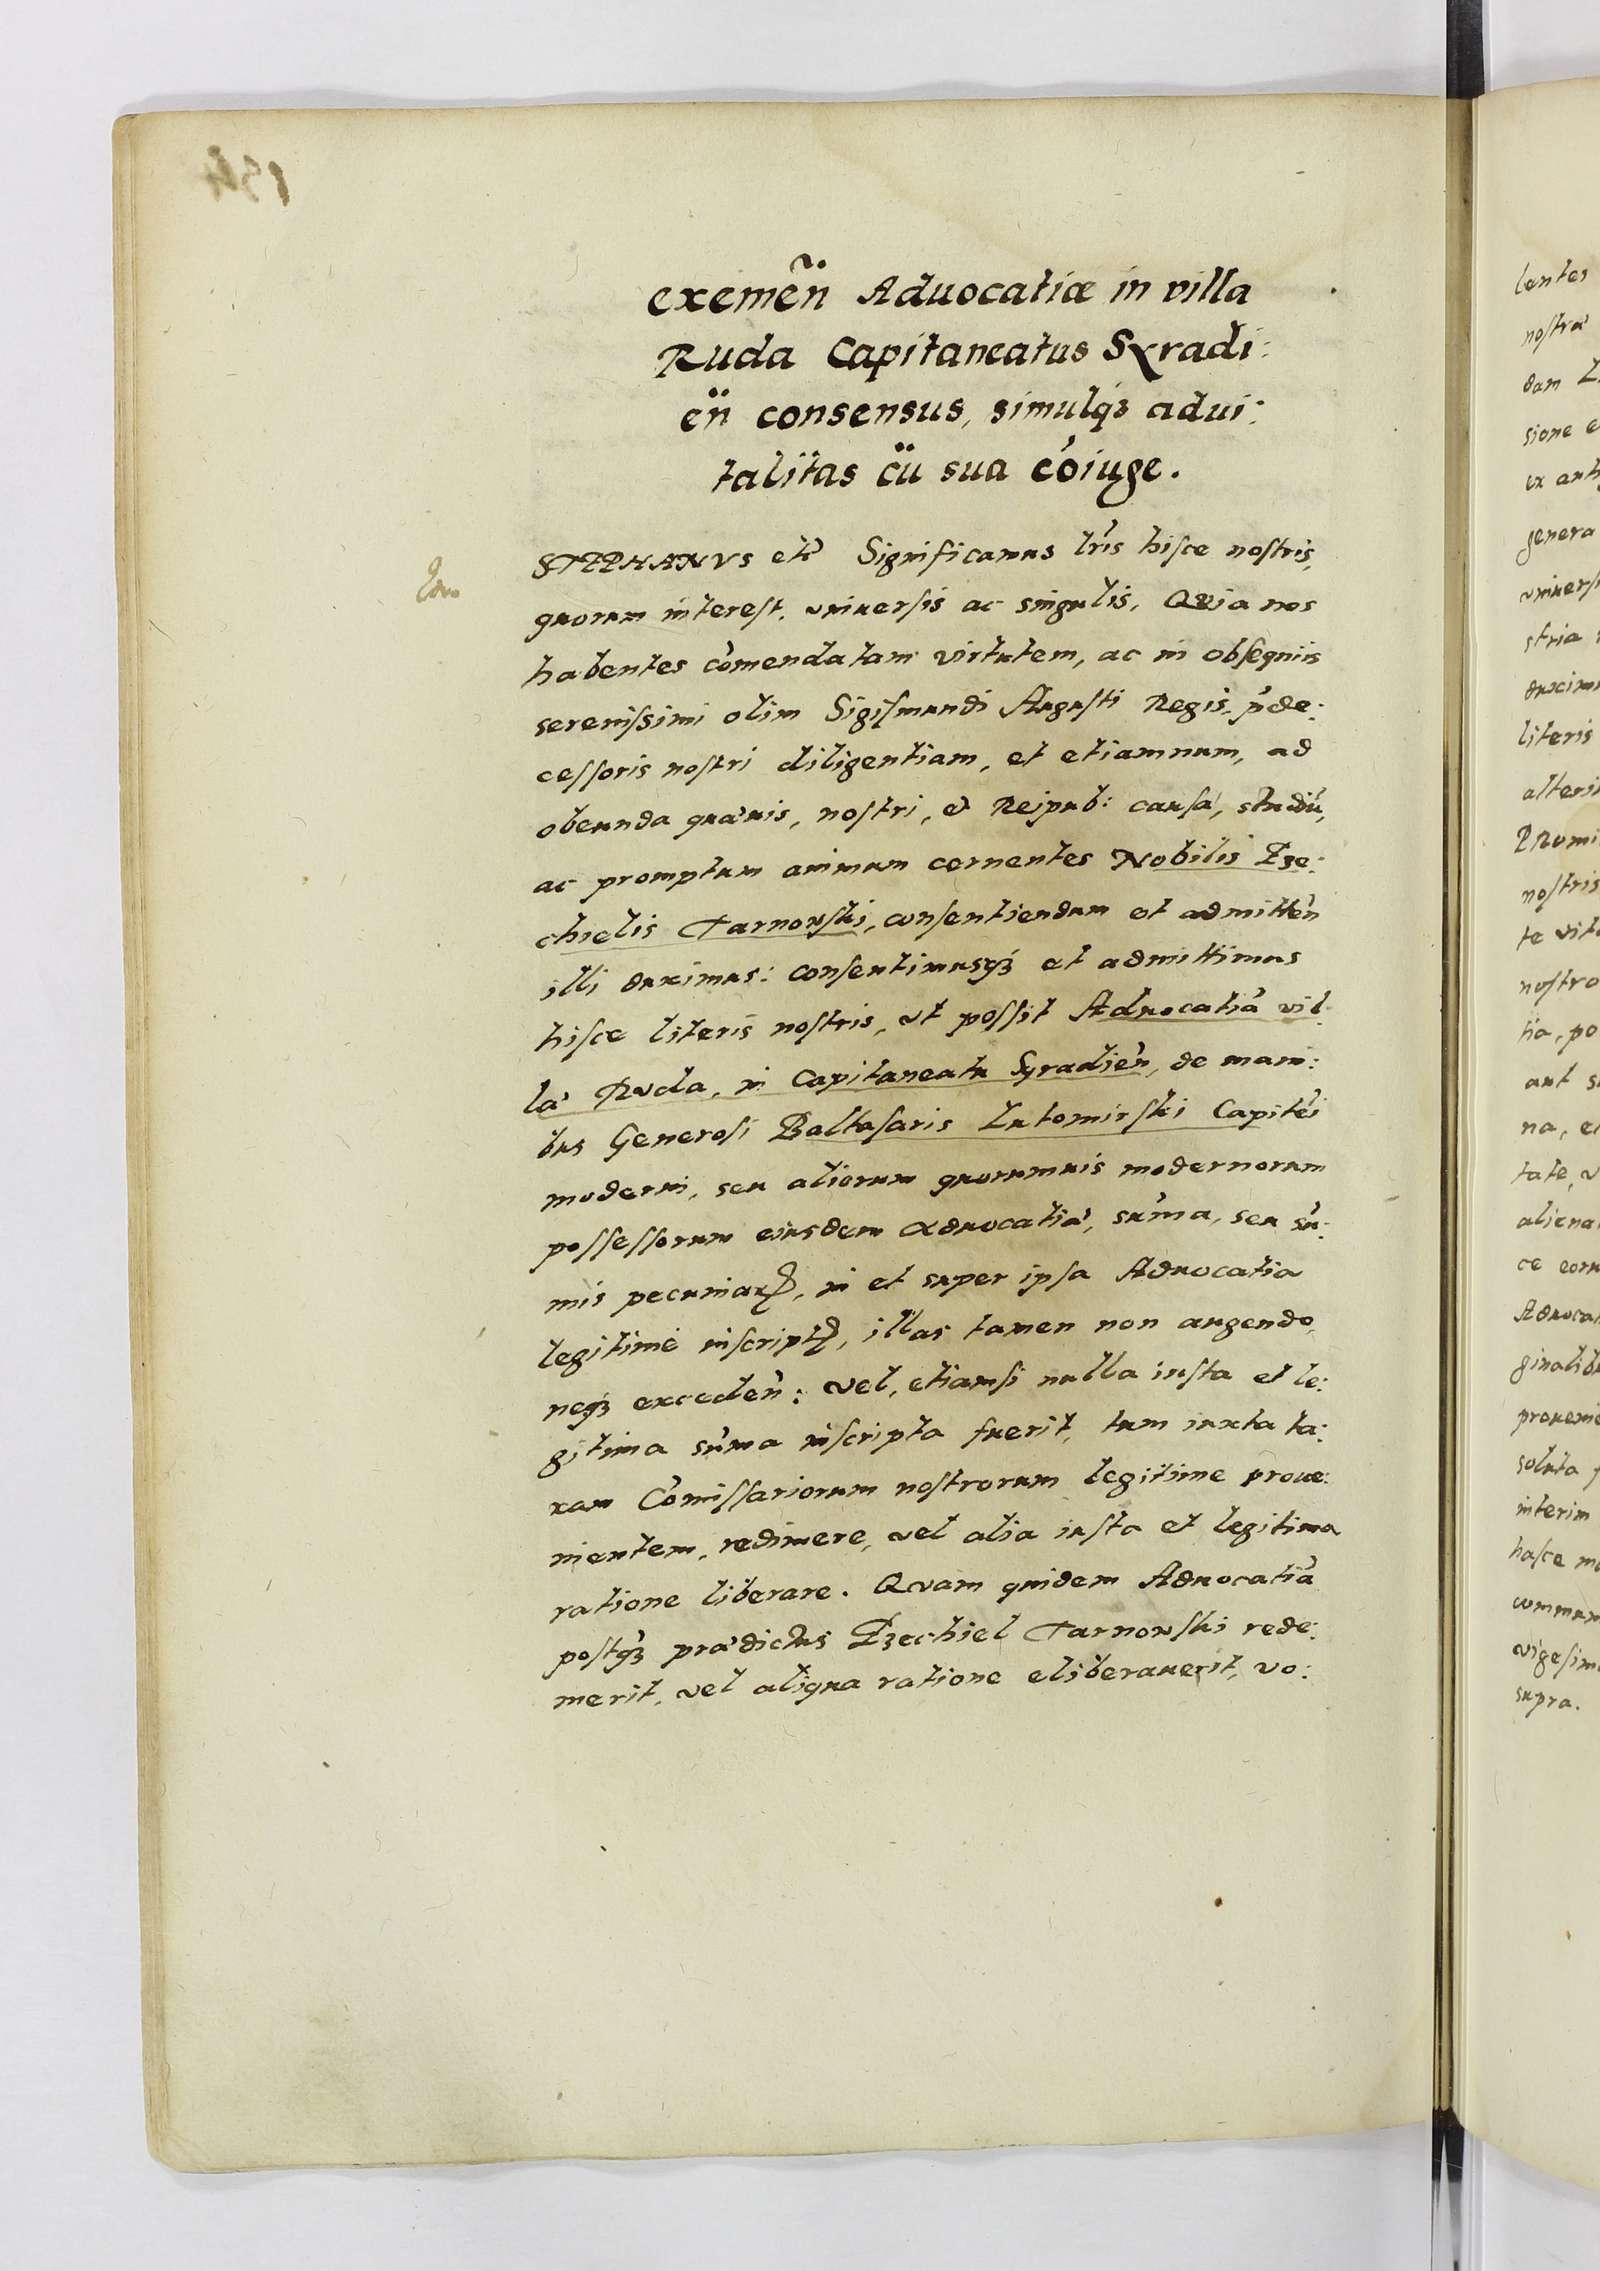 exemen̄ Aduocatiæ in villa
Ruda Capitaneatus Syradi:
en̄ consensus, simulqȝ adui:
talitas cū sua cōiuge.
STEPHANVS etc̄ Significamus lrīs hisce nostris,
quorum interest, vniuersis ac singulis, Quia nos
habentes cōmendatam virtutem, ac in obsequiis
serenissimi olim Sigismundi Augusti Regis, p̄de:
cessoris nostri diligentiam, et etiamnum, ad
obeunda quæuis, nostri, et Reipub: causa, studiū,
ac promptum animum cernentes Nobilis Eze:
chielis Tarnowski, consentiendum et admitten̄
illi duximus: consentimusqȝ et admittimus
hisce literis nostris, vt possit Aduocatiā vil:
læ Ruda, in Capitaneatu Syradien̄, de mani:
bus Generosi Baltasaris Lutomirski Capitēi
moderni, seu aliorum quorumuis modernorum
possessorum eiusdem Aduocatiæ, sūma, seu sū:
mis pecuniarꝝ, in et super ipsa Aduocatia
legitimè inscriptꝭ, illas tamen non augendo,
neqȝ exceden̄: vel, etiamsi nulla iusta et le:
gitima sūma inscripta fuerit, tum iuxta ta:
xam Cōmissariorum nostrorum legitime proue:
nientem, redimere, vel alia iusta et legitima
ratione liberare. Quam quidem Aduocatiā
postqȝ prædictus Ezechiel Tarnowski rede:
merit, vel aliqua ratione eliberauerit, vo:
lentes
nostra
dam
sione
genera
stria
literis
nostris
te
nostro
na,
tate,
aliena
Aduoca
soluta
interim
supra.